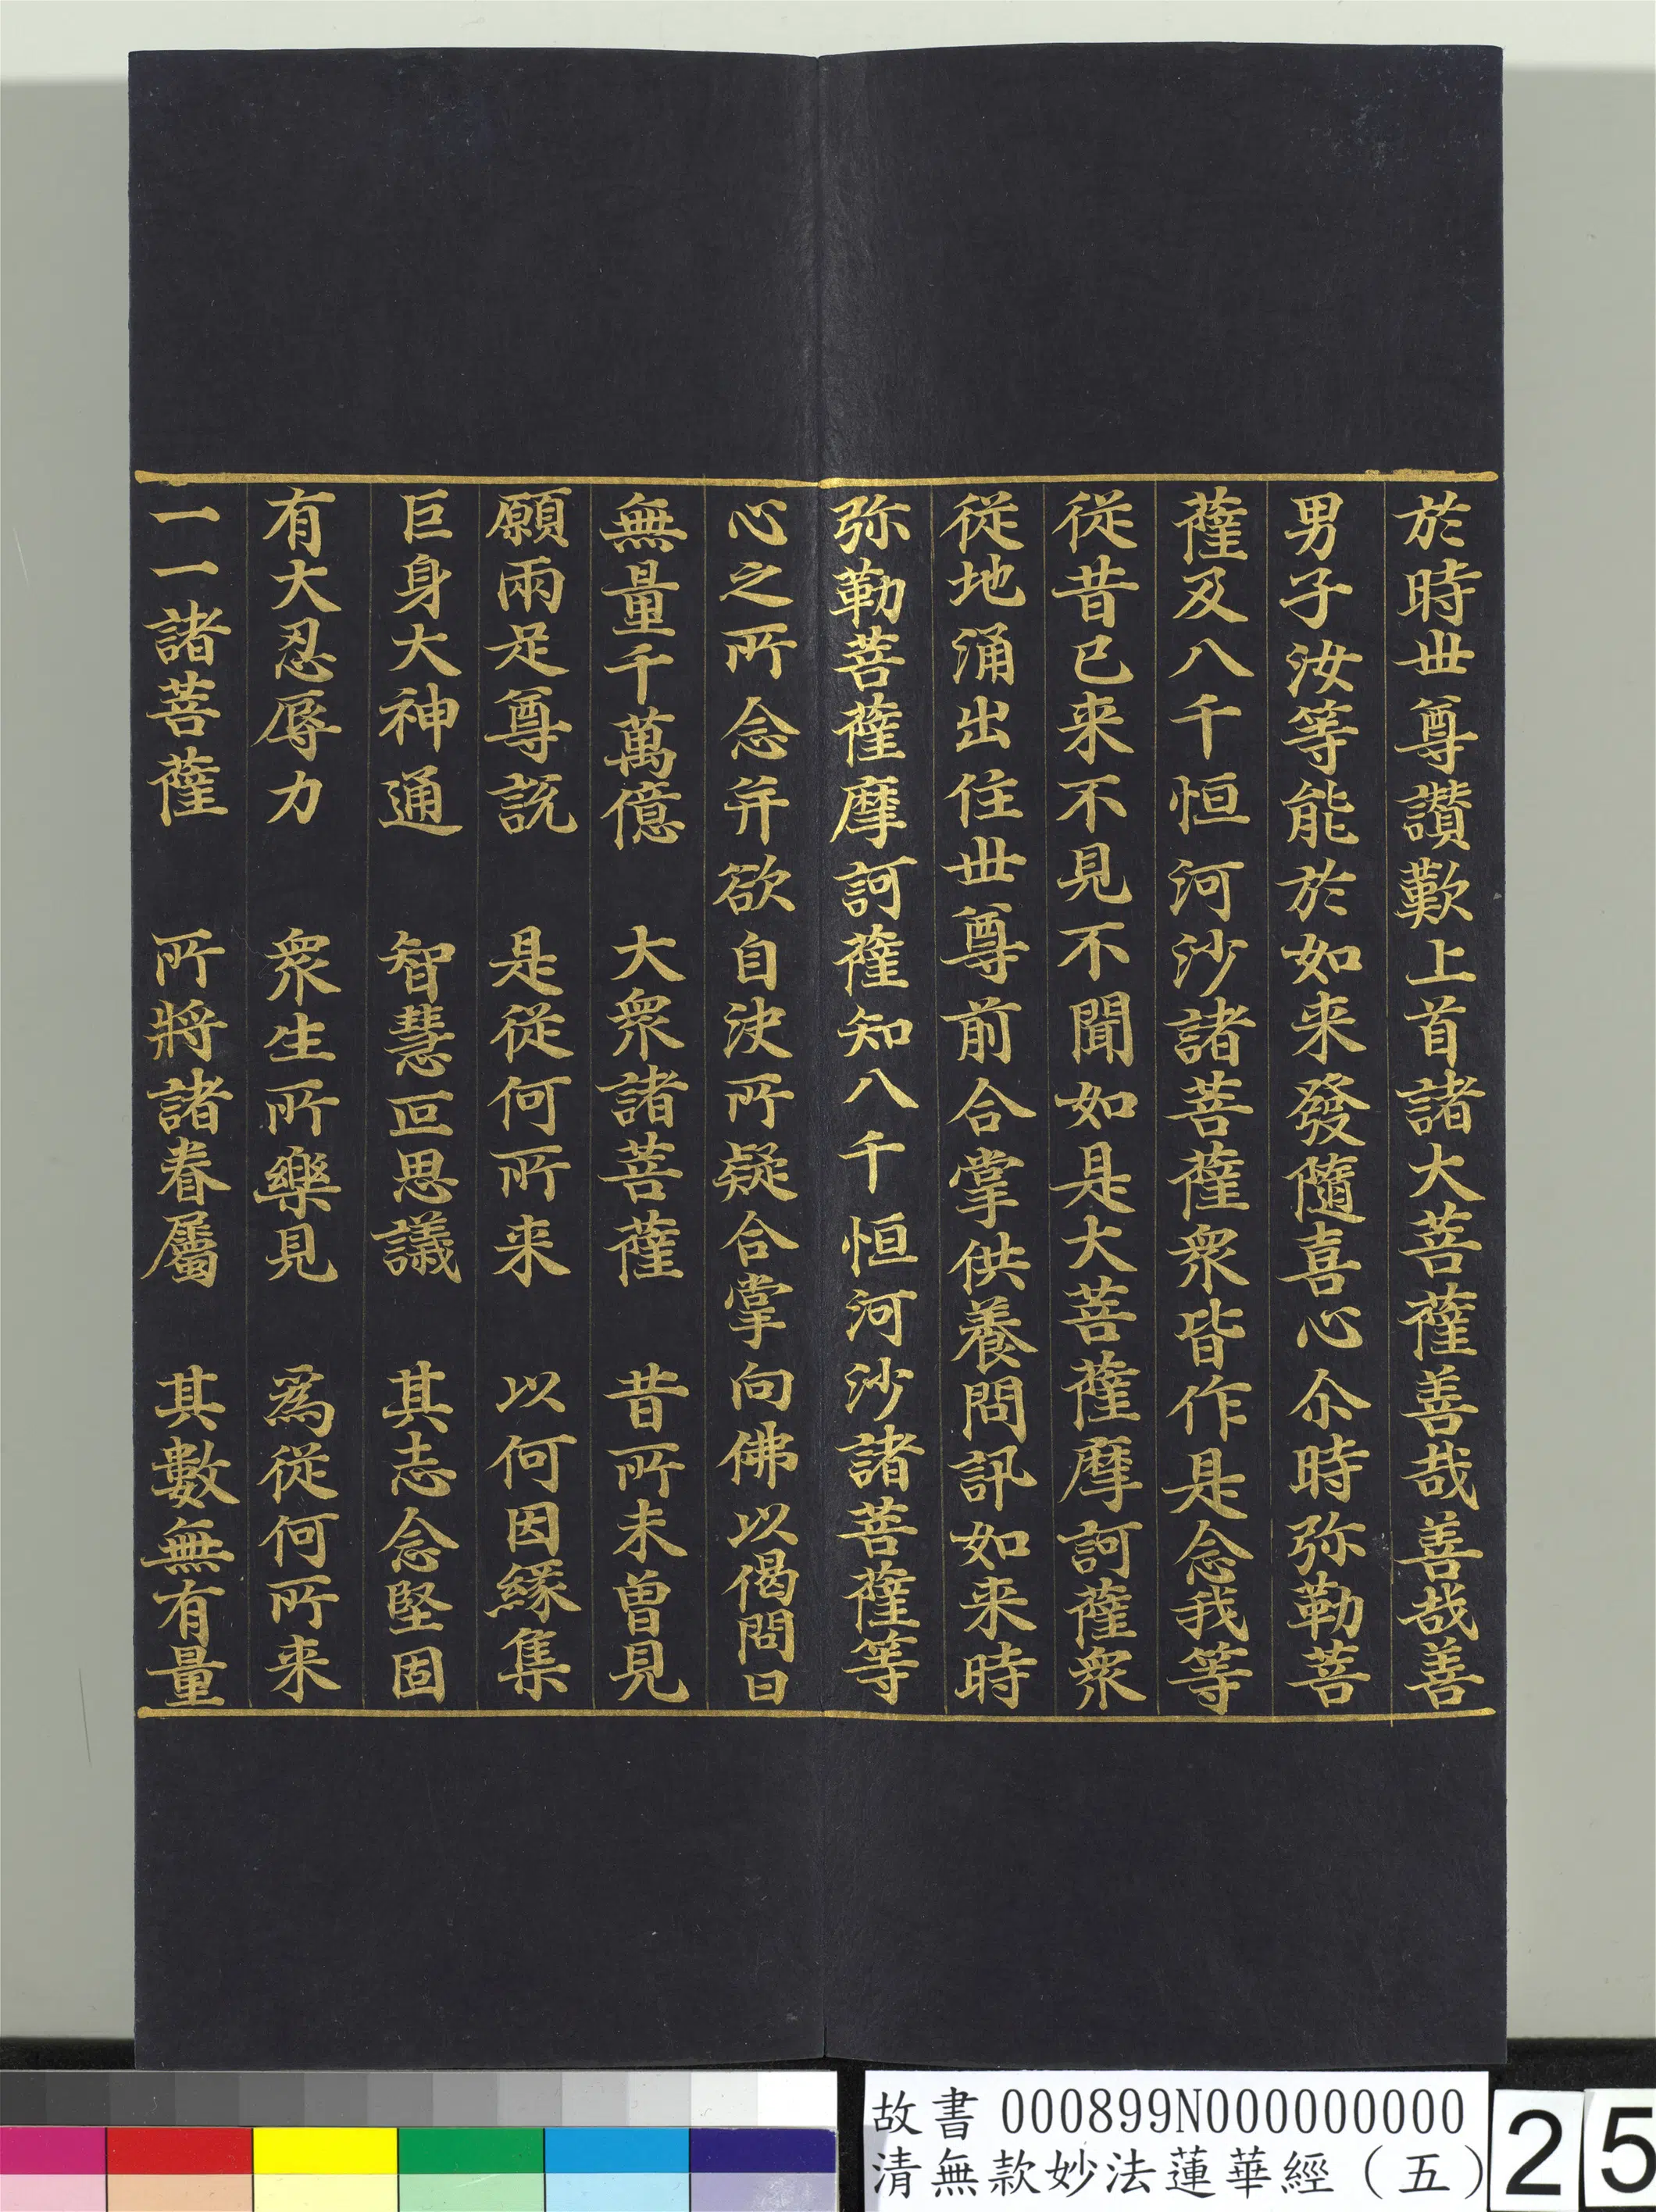 於時世尊讃歎上首諸大菩薩善哉善哉善
男子汝等能於如来發隨喜心尒時弥勒菩
薩及八千恒河沙諸菩薩衆皆作是念我等
從昔已来不見不聞如是大菩薩摩訶薩衆
從地涌出住世尊前合掌供養問訊如来時
弥勒菩薩摩訶薩知八千恒河沙諸菩薩等
心之所念并欲自決所疑合掌向佛以偈問曰
無量千萬億　大衆諸菩薩　昔所未曽見
願兩足尊説　是從何所来　以何因緣集
巨身大神通　智慧叵思議　其志念堅固
有大忍辱力　衆生所樂見　為從何所来
一一諸菩薩　所將諸眷屬　其數無有量
故書 000899N000000000
清無款妙法蓮華經（五）
25